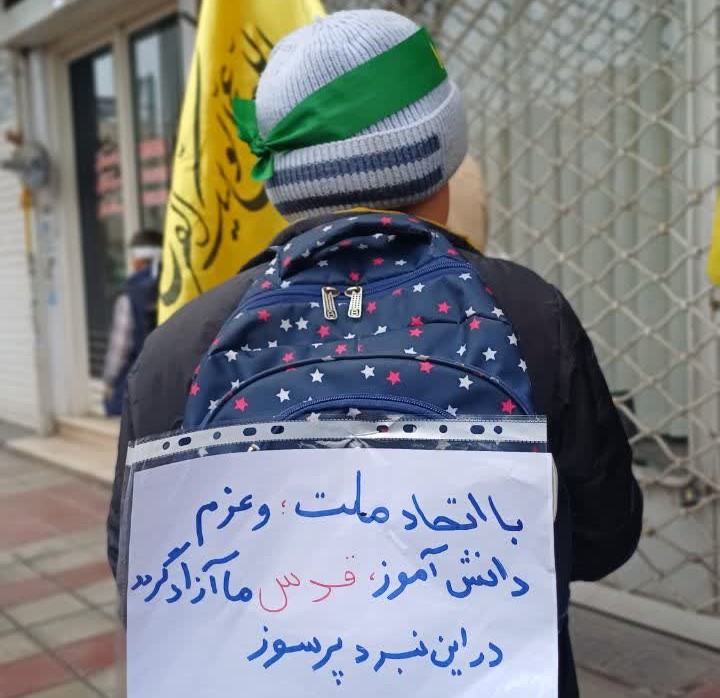 با اتحاد ملت؛ وعزم
دانش آموز، قدس ما آزاد گردد
در این نبرد پرسوز